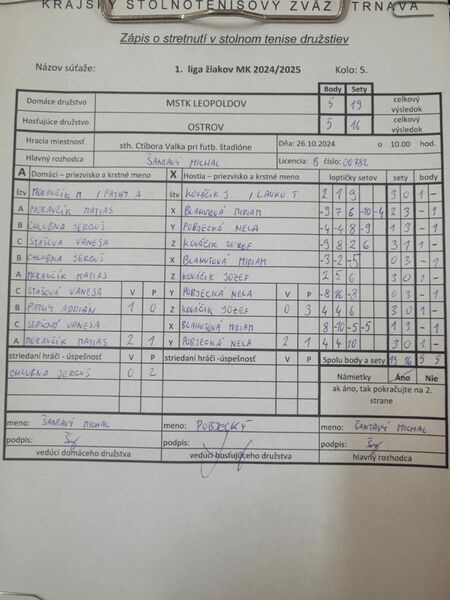 KRAJSKÝ STOLNOTENISOVÝ ZVÄZ TRNAVA
Zápis o stretnutí v stolnom tenise družstiev
Názov súťaže: 1. liga žiakov MK 2024/2025 Kolo: 5.
Body Sety
Domáce družstvo MSTK LEOPOLDOV 5 19 celkový výsledok
Hosťujúce družstvo OSTROV 5 16 celkový výsledok
Hracia miestnosť sth. Ctibora Valka pri futb. štadióne Dňa: 26.10.2024 o 10.00 hod.
Hlavný rozhodca ŠANTAVÝ MICHAL Licencia: B číslo: 00782
A Domáci - priezvisko a krstné meno X Hostia - priezvisko a krstné meno loptičky setov sety body
štv MORAVČÍK M / PATHY A štv KOVÁČIK J / LAUKO T 2 1 9 3 0 1 -
A MORAVČÍK MATIAS X BLAHUTOVÁ MIRIAM -9 7 6 -10 -4 2 3 - 1
B CHLUBNA JERGUŠ Y POBJECKÁ NELA -4 -4 8 -9 1 3 - 1
C STAŠOVÁ VANESA Z KOVÁČIK JOZEF -9 8 2 6 3 1 1 -
B CHLUBNA JERGUŠ X BLAHUTOVÁ MIRIAM -3 -2 -5 0 3 - 1
A MORAVČÍK MATIAS Z KOVÁČIK JOZEF 2 5 6 3 0 1 -
C STAŠOVÁ VANESA V P Y POBJECKÁ NELA V P -8 -3 0 3 - 1
B PATHY ADRIÁN 1 0 Z KOVÁČIK JOZEF 0 3 4 4 6 3 0 1 -
C STAŠOVÁ VANESA X BLAHUTOVÁ MIRIAM 8 -10 -5 -5 1 3 - 1
A MORAVČÍK MATIAS 2 1 Y POBJECKÁ NELA 2 1 4 4 10 3 0 1 -
striedaní hráči - úspešnosť V P striedaní hráči -úspešnosť V P Spolu body a sety 19 16 5 5
CHLUBNA JERGUŠ 0 2 Námietky Áno Nie
ak áno, tak pokračujte na 2. strane
meno: ŠANTAVÝ MICHAL meno: POBJECKÝ meno: ŠANTAVÝ MICHAL
podpis: podpis: podpis:
vedúci domáceho družstva vedúci hosťujúceho družstva hlavný rozhodca